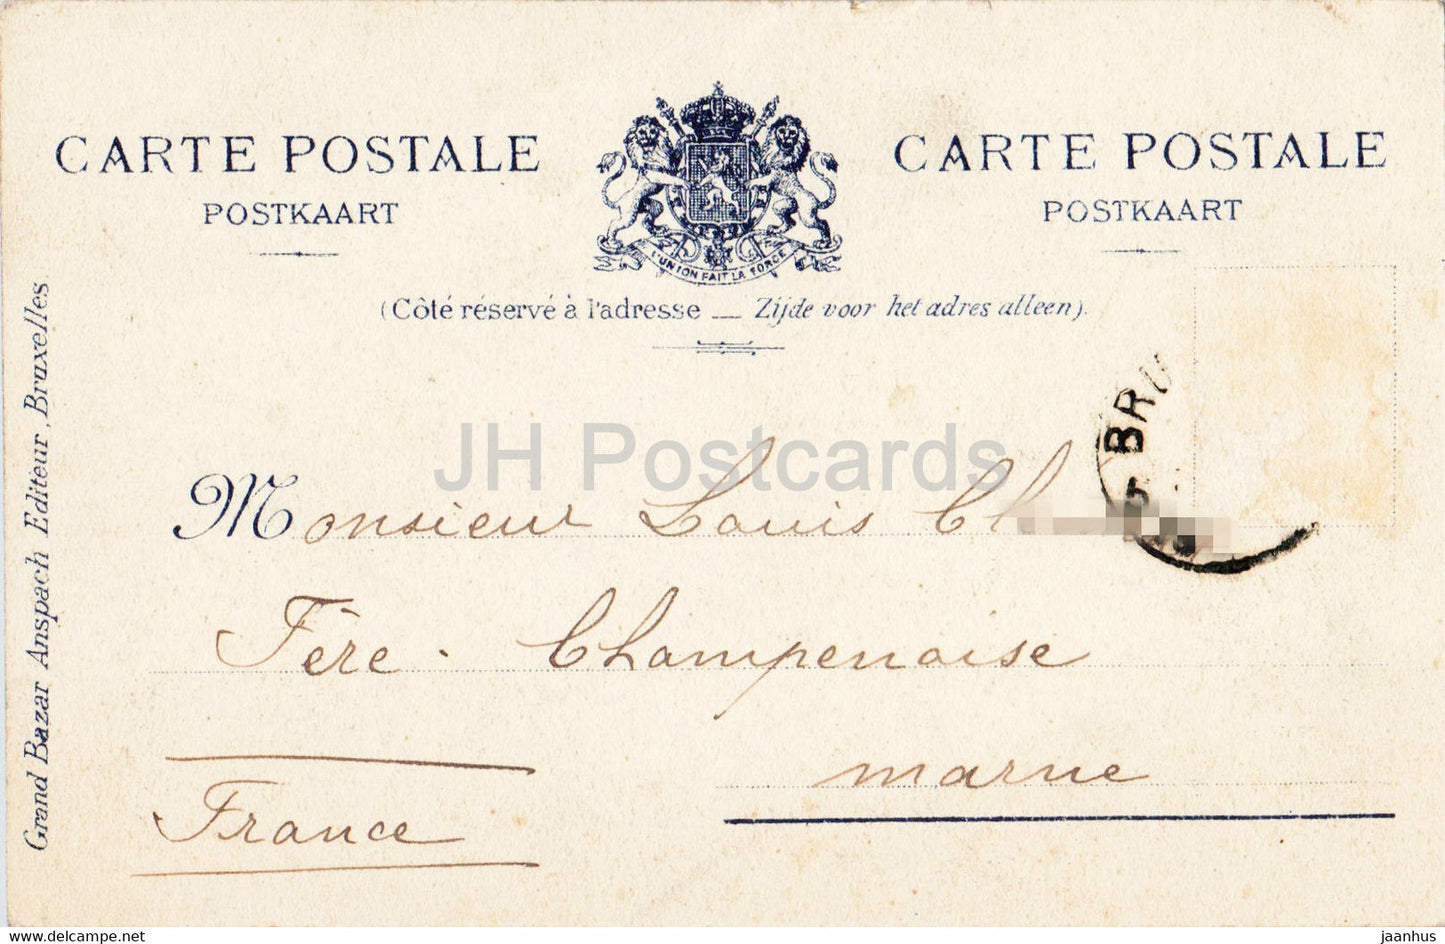 CARTE POSTALE
POSTKAART
CARTE POSTALE
POSTKAART
L'UNION FAIT LA FORCE
(Côté réservé à l'adresse __ Zijde voor het adres alleen).
Grand Bazar Anspach Editeur, Bruxelles
BRU
JH Postcards
Monsieur Louis
Fère-Champenoise
marne
France
www.delcampe.net
jaanhus